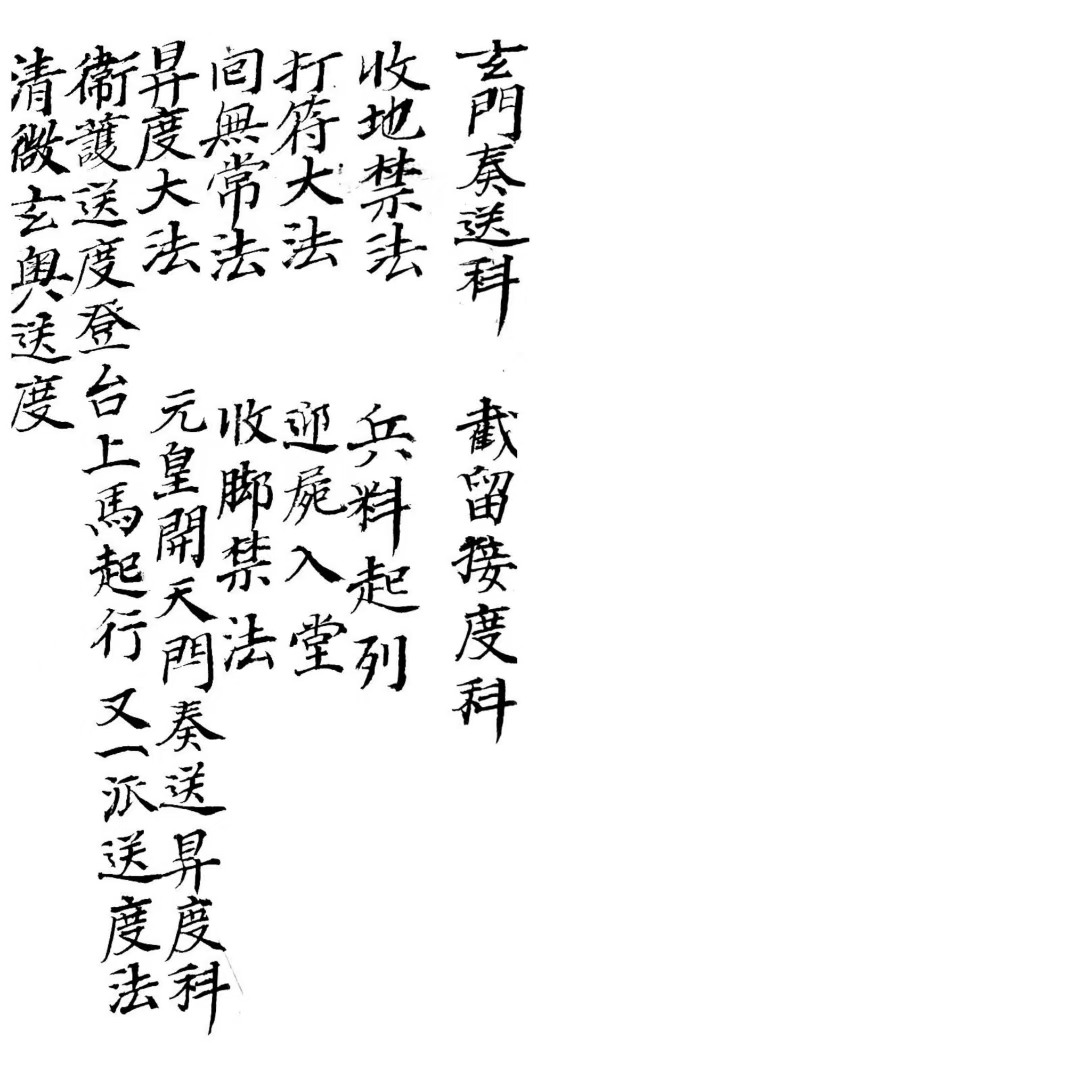 玄門奏送科 截留接度科
收地禁法 兵料起列
打符大法 迎屍入堂
囬無常法 收脚禁法
昇度大法 元皇開天門奏送昇度科
衛護送度登台上馬起行 又一派送度法
清微玄奥送度